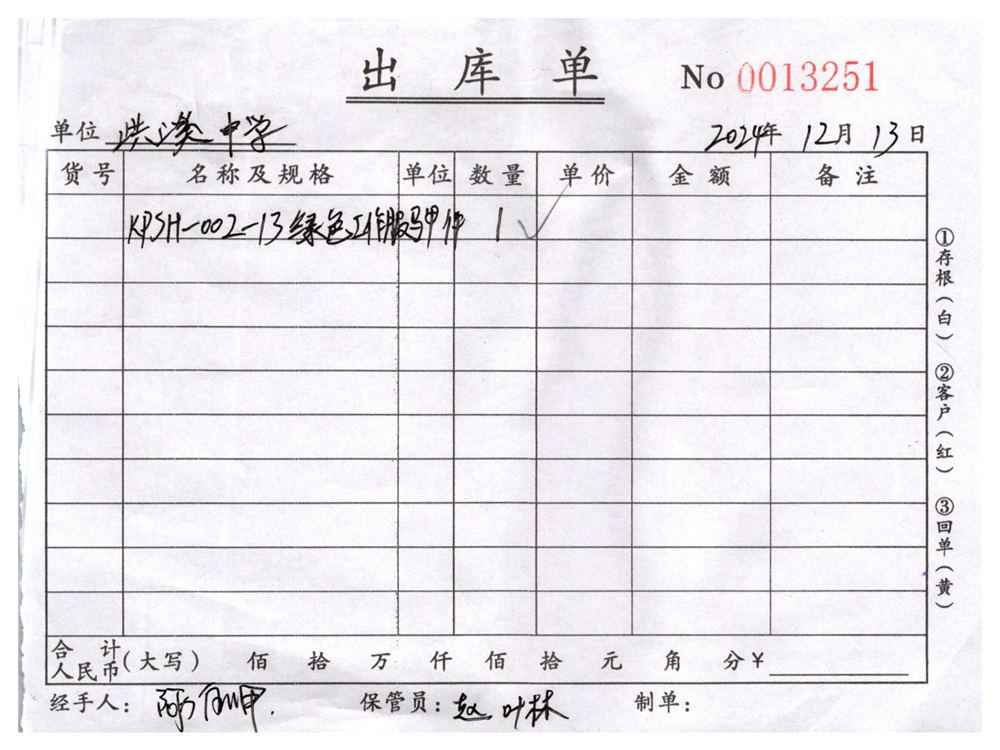 出库单 No 0013251
单位 洪濑中学 2024年 12月 13日
货号 名称及规格 单位 数量 单价 金额 备注
KPSH-002-13绿色工作服马甲 件 1
合计人民币(大写) 佰 拾 万 仟 佰 拾 元 角 分 ¥
经手人: 保管员: 赵叶林 制单:
①存根(白) ②客户(红) ③回单(黄)